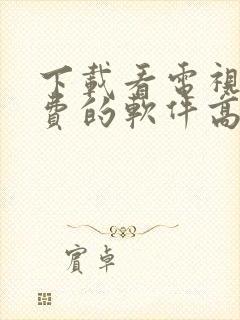 下載看電視
費的軟件高
賓卓